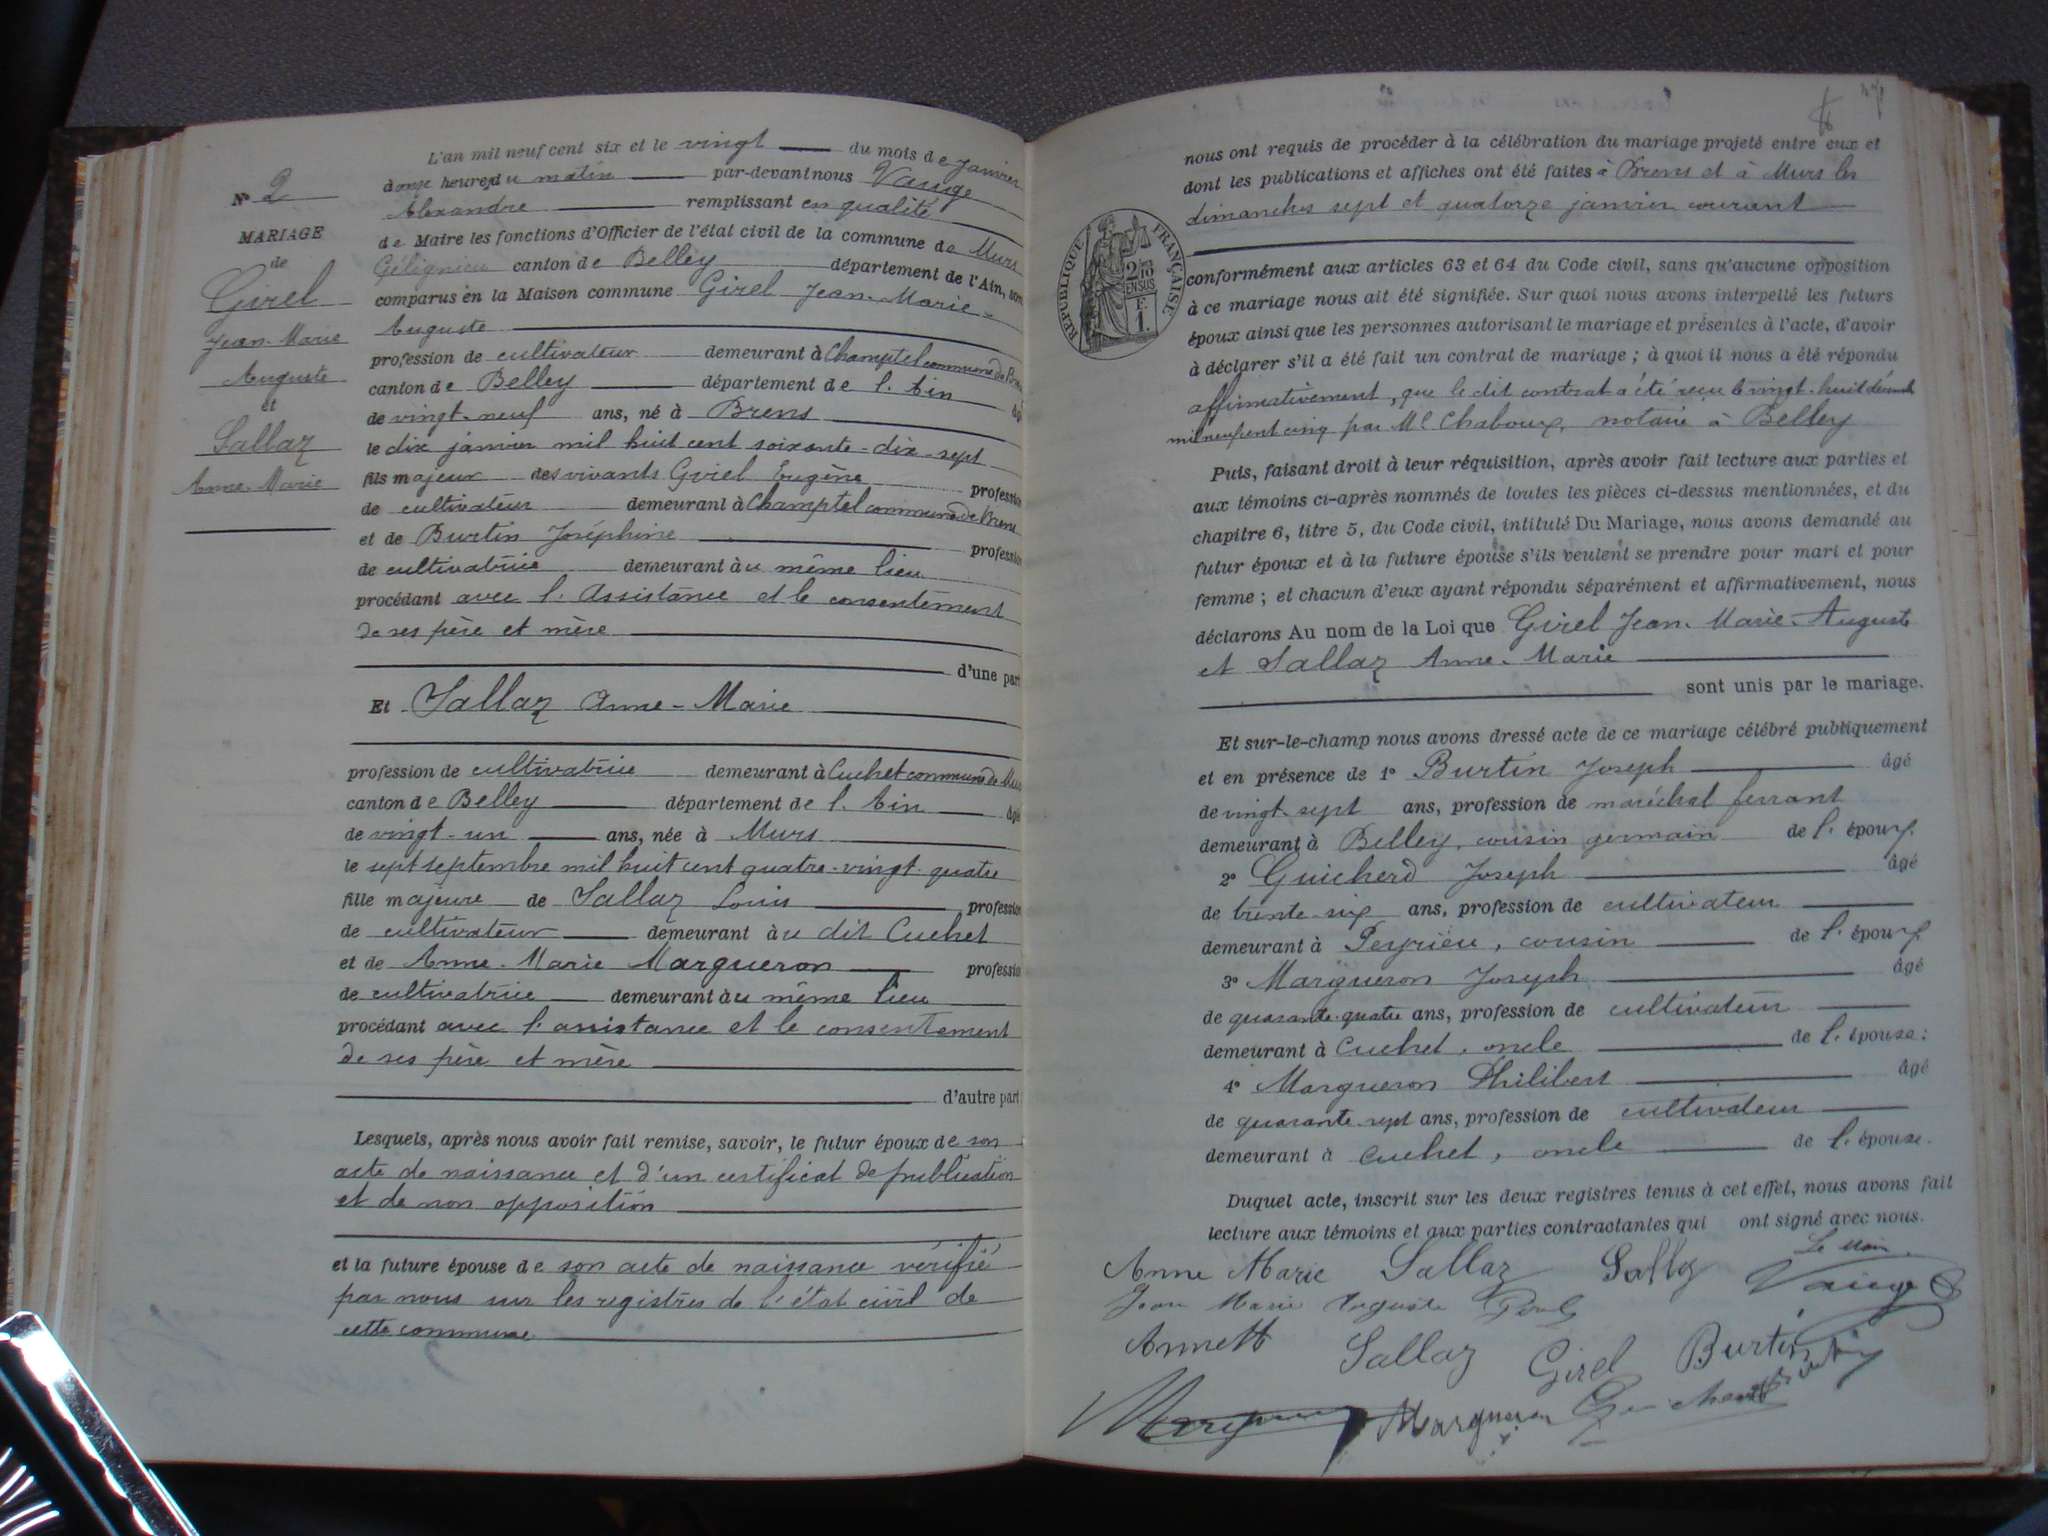 L'an mil neuf cent six et le vingt du mois de janvier
à onze heures du matin par-devant nous Vauge
Alexandre remplissant en qualité
de Maire les fonctions d'Officier de l'état civil de la commune de Murs
Gélignieu canton de Belley département de l'Ain, sont
comparus en la Maison commune Girel Jean-Marie-
Auguste
profession de cultivateur demeurant à Champtel commune de Brens
canton de Belley département de l'Ain âgé
de vingt-neuf ans, né à Brens
le dix janvier mil huit cent soixante-dix-sept
fils majeur des vivants Girel Eugène profession
de cultivateur demeurant à Champtel commune de Brens
et de Burtin Joséphine profession
de cultivatrice demeurant au même lieu
procédant avec l'Assistance et le consentement
de ses père et mère
d'une part
Et Sallaz Anne-Marie
profession de cultivatrice demeurant à Cuchet commune de Murs
canton de Belley département de l'Ain âgée
de vingt-un ans, née à Murs
le sept septembre mil huit cent quatre-vingt-quatre
fille majeure de Sallaz Louis profession
de cultivateur demeurant au dit Cuchet
et de Anne-Marie Margueron profession
de cultivatrice demeurant au même lieu
procédant avec l'assistance et le consentement
de ses père et mère
d'autre part
Lesquels, après nous avoir fait remise, savoir, le futur époux de son
acte de naissance et d'un certificat de publication
et de non opposition
et la future épouse de son acte de naissance vérifié
par nous sur les registres de l'état civil de
cette commune
N° 2
MARIAGE
de
Girel
Jean-Marie
Auguste
et
Sallaz
Anne-Marie
nous ont requis de procéder à la célébration du mariage projeté entre eux et
dont les publications et affiches ont été faites à Brens et à Murs les
dimanches sept et quatorze janvier courant
RÉPUBLIQUE FRANÇAISE
2/10 EN SUS
F. 1.
conformément aux articles 63 et 64 du Code civil, sans qu'aucune opposition
à ce mariage nous ait été signifiée. Sur quoi nous avons interpellé les futurs
époux ainsi que les personnes autorisant le mariage et présentes à l'acte, d'avoir
à déclarer s'il a été fait un contrat de mariage ; à quoi il nous a été répondu
affirmativement, que le dit contrat a été reçu le vingt-huit décembre
mil neuf cent cinq par Me Chaboux, notaire à Belley
Puis, faisant droit à leur réquisition, après avoir fait lecture aux parties et
aux témoins ci-après nommés de toutes les pièces ci-dessus mentionnées, et du
chapitre 6, titre 5, du Code civil, intitulé Du Mariage, nous avons demandé au
futur époux et à la future épouse s'ils veulent se prendre pour mari et pour
femme ; et chacun d'eux ayant répondu séparément et affirmativement, nous
déclarons Au nom de la Loi que Girel Jean-Marie-Auguste
et Sallaz Anne-Marie
sont unis par le mariage.
Et sur-le-champ nous avons dressé acte de ce mariage célébré publiquement
et en présence de 1° Burtin Joseph âgé
de vingt-sept ans, profession de maréchal ferrant
demeurant à Belley, cousin germain de l'époux.
2° Guicherd Joseph âgé
de trente-six ans, profession de cultivateur
demeurant à Peyrieu, cousin de l'époux.
3° Margueron Joseph âgé
de quarante-quatre ans, profession de cultivateur
demeurant à Cuchet, oncle de l'épouse :
4° Margueron Philibert âgé
de quarante-sept ans, profession de cultivateur
demeurant à Cuchet, oncle de l'épouse.
Duquel acte, inscrit sur les deux registres tenus à cet effet, nous avons fait
lecture aux témoins et aux parties contractantes qui ont signé avec nous.
Anne Marie Sallaz Sallaz Le Maire
Jean Marie Auguste Vauge
Sallaz Girel Burtin
Margueron Guicherd